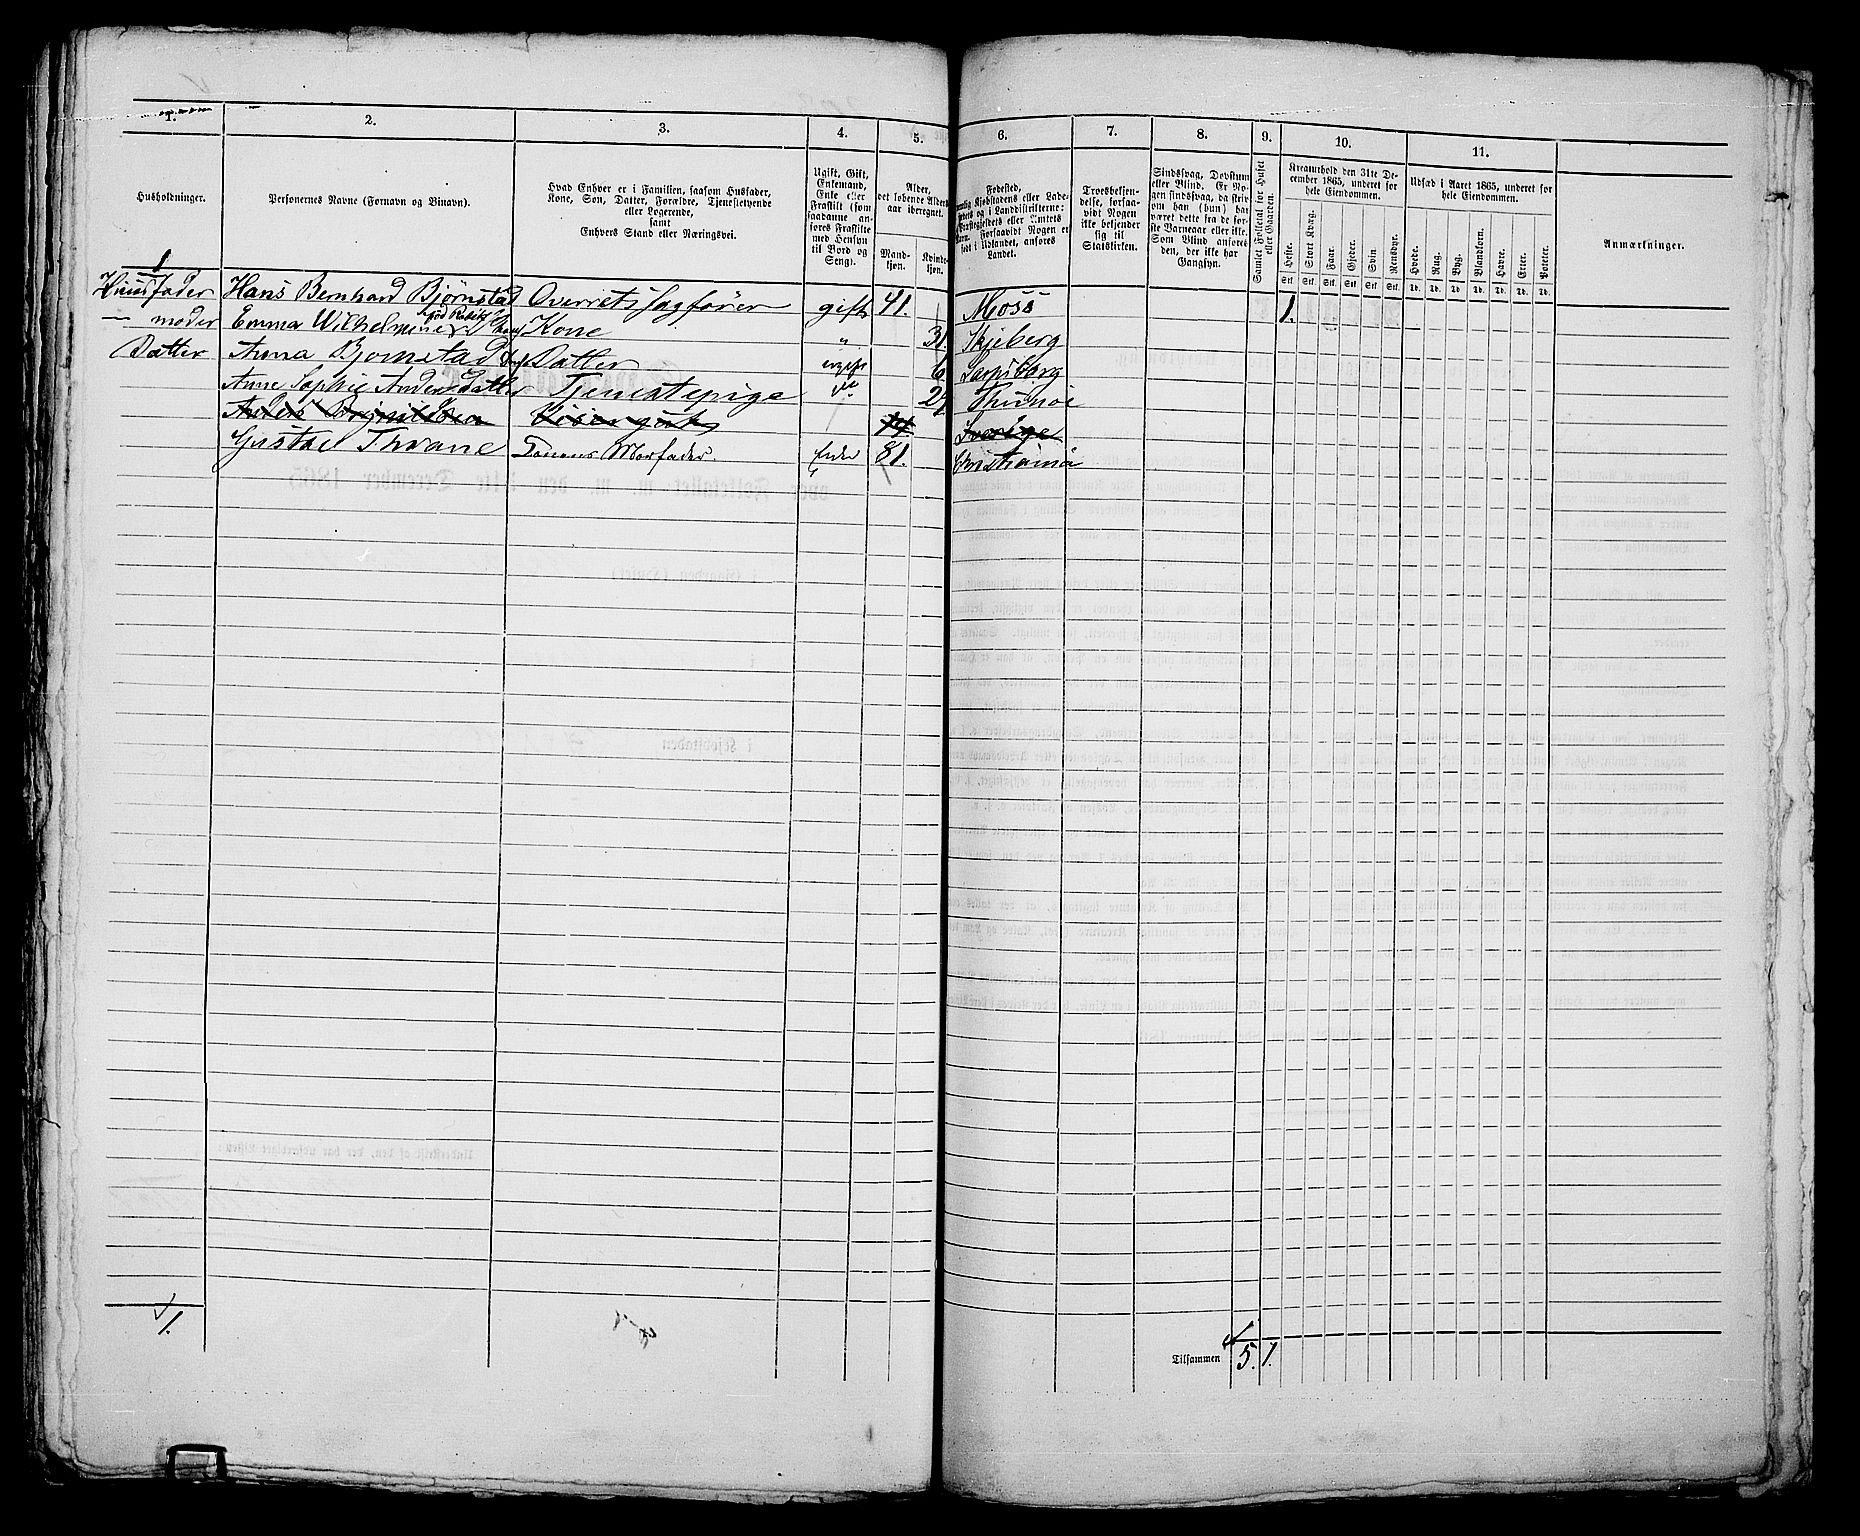 1. 2. 3. 4. 5. 6. 7. 8. 9. 10. 11.
Husholdninger.
Personernes Navne (Fornavn og Binavn).
Hvad Enhver er i Familien, saasom Husfader,
Kone, Søn, Datter, Forældre, Tjenestetyende
eller Logerende,
samt
Enhvers Stand eller Næringsvei.
Ugift, Gift,
Enkemand,
Enke eller
Fraskilt (som
saadanne an-
føres Fraskilte
med Hensyn
til Bord og
Seng).
Alder,
det løbende Alders-
aar iberegnet.
Mand-
kjøn.
Kvinde-
kjøn.
Fødested,
Kjøbstadens eller Lade-
og i Landdistrikterne:
eller Amtets
Forsaavidt Nogen er
født i Udlandet, anføres
Landet.
Troesbekjen-
delse, forsaa-
vidt Nogen
ikke bekjender
sig til
Statskirken.
Sindssvag, Døvstum
eller Blind. Er No-
gen sindssvag, da skriv
om han (hun) har
været dette fra de før-
ste Barneaar eller ikke.
Som Blind anføres
den, der ikke har
Gangsyn.
Samlet Folketal for Huset
eller Gaarden.
Kreaturhold den 31te De-
cember 1865, underet for
hele Eiendommen.
Heste. Stort Kvæg. Faar. Gjeder. Svin. Rensdyr.
Stk. Stk. Stk. Stk. Stk. Stk.
Udsæd i Aaret 1865, underet for
hele Eiendommen.
Hvede. Rug. Byg. Blandkorn. Havre. Erter. Poteter.
Td. Td. Td. Td. Td. Td. Td.
Anmærkninger.
1
Huusfader Hans Bernhard Bjørnstad Overretssagfører gift 41. Moss 1.
— moder Emma Wilhelmine Kone " 31. Skjeberg
Datter Anna Bjørnstad Datter ugift 6 Sarpsborg
Anne Sophie Andersdatter Tjenestepige do 29 Thunøe
Anders 14 Sverige
Gustav Thrane Konens Morfader. Enke 81. Christiania
1.
Tilsammen 5. 1.